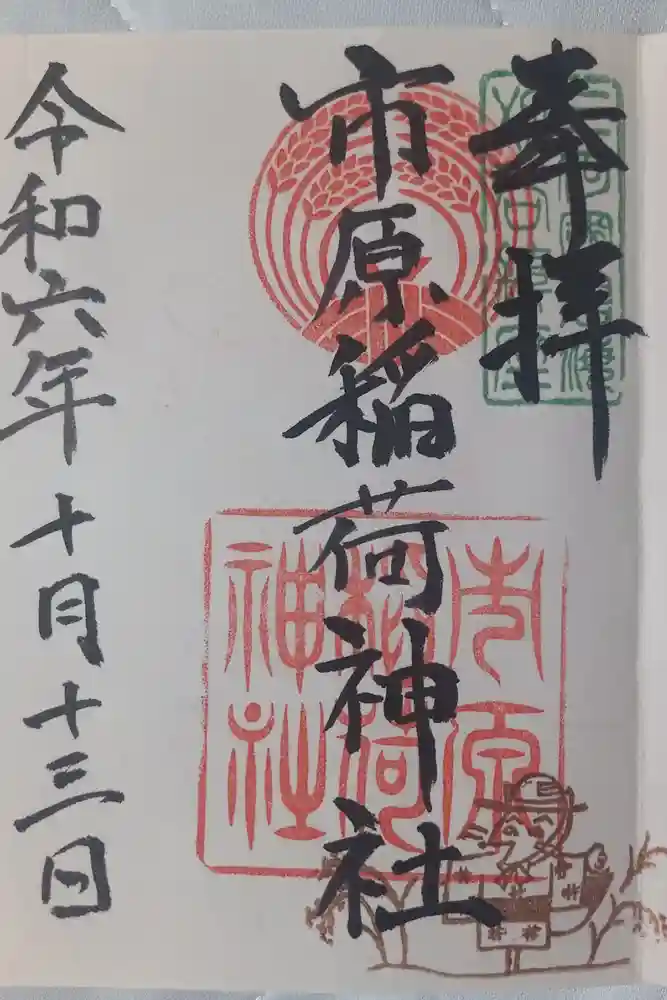 奉拝
市原稲荷神社
市原
稲荷
神社
令和六年十月十三日